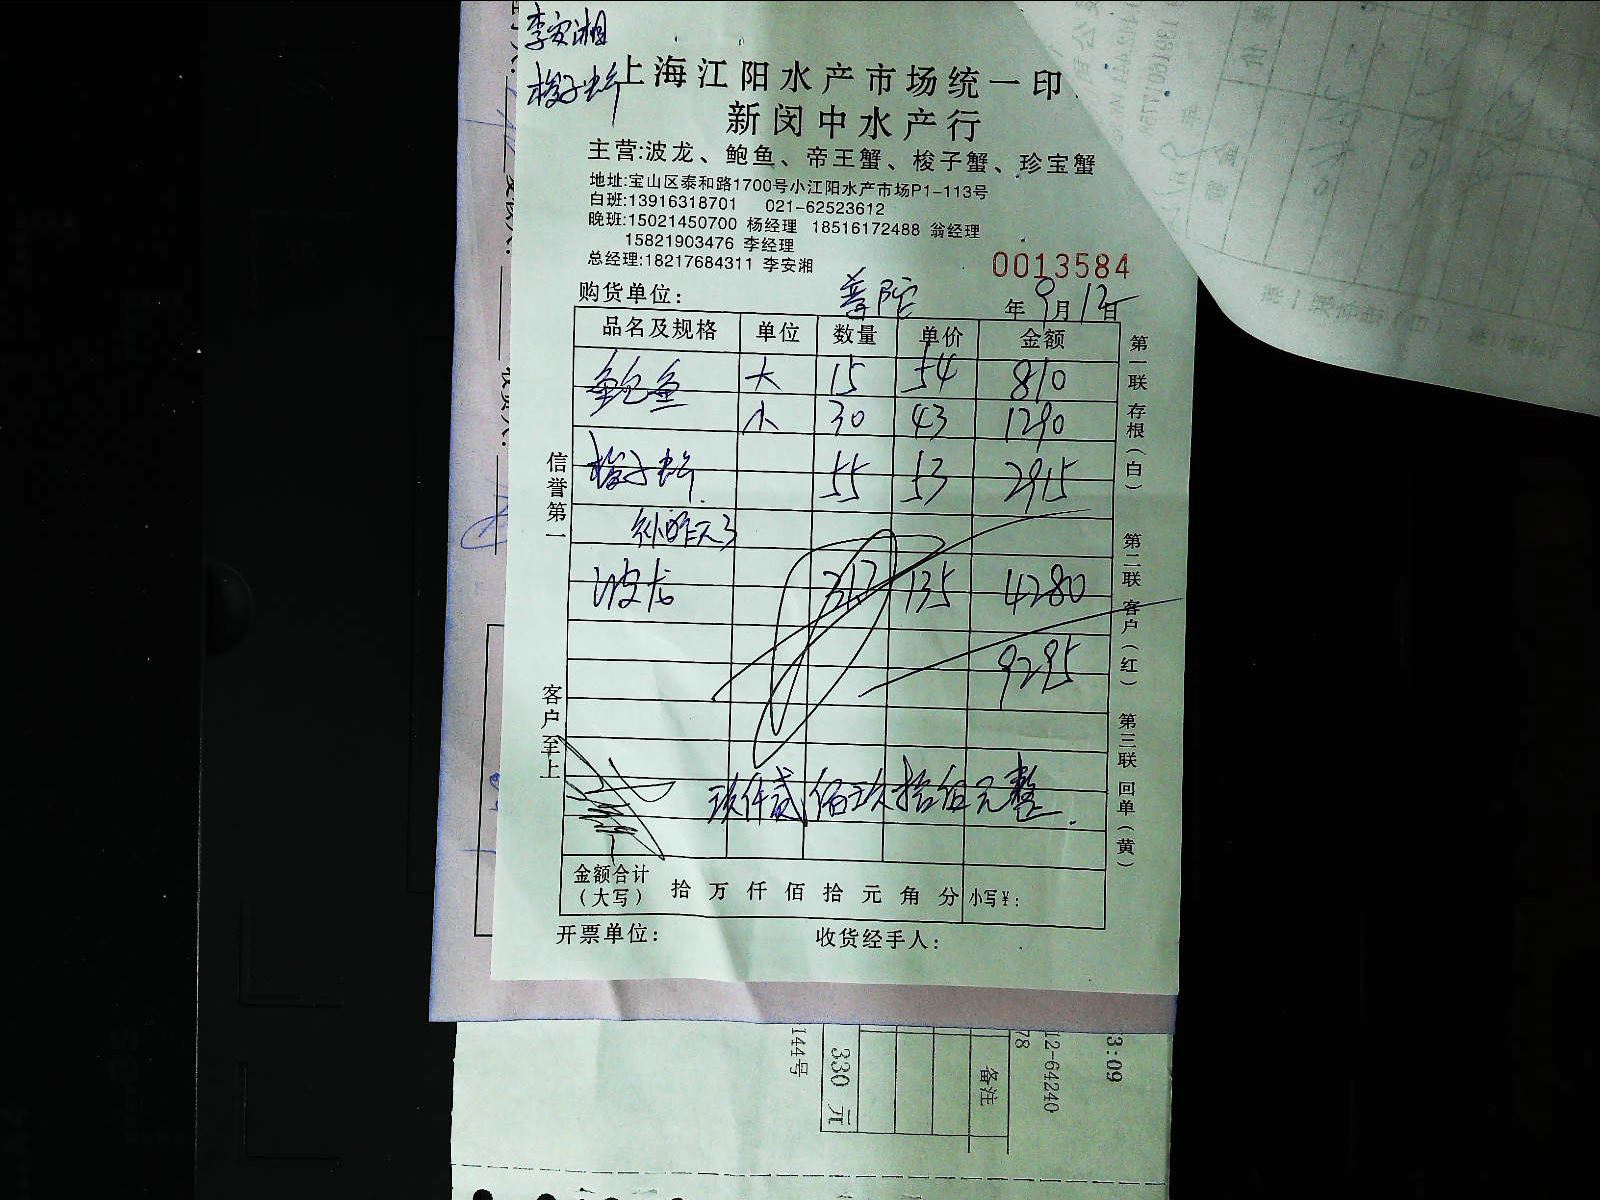 李安湘
梭子蟹
上海江阳水产市场统一印
新闵中水产行
主营:波龙、鲍鱼、帝王蟹、梭子蟹、珍宝蟹
地址:宝山区泰和路1700号小江阳水产市场P1-113号
白班:13916318701 021-62523612
晚班:15021450700 杨经理 18516172488 翁经理
15821903476 李经理
总经理:18217684311 李安湘
0013584
购货单位: 普陀 年 9月12日
品名及规格 单位 数量 单价 金额
鲍鱼 大 15 54 810
小 30 43 1290
梭子蟹 55 53 2915
补昨天3
波龙 317 135 4280
9295
玖仟贰佰玖拾伍元整
金额合计
(大写) 拾 万 仟 佰 拾 元 角 分 小写¥:
开票单位: 收货经手人:
信誉第一
客户至上
第一联 存根(白)
第二联 客户(红)
第三联 回单(黄)
3:09
12-64240
78
备注
330 元
144号